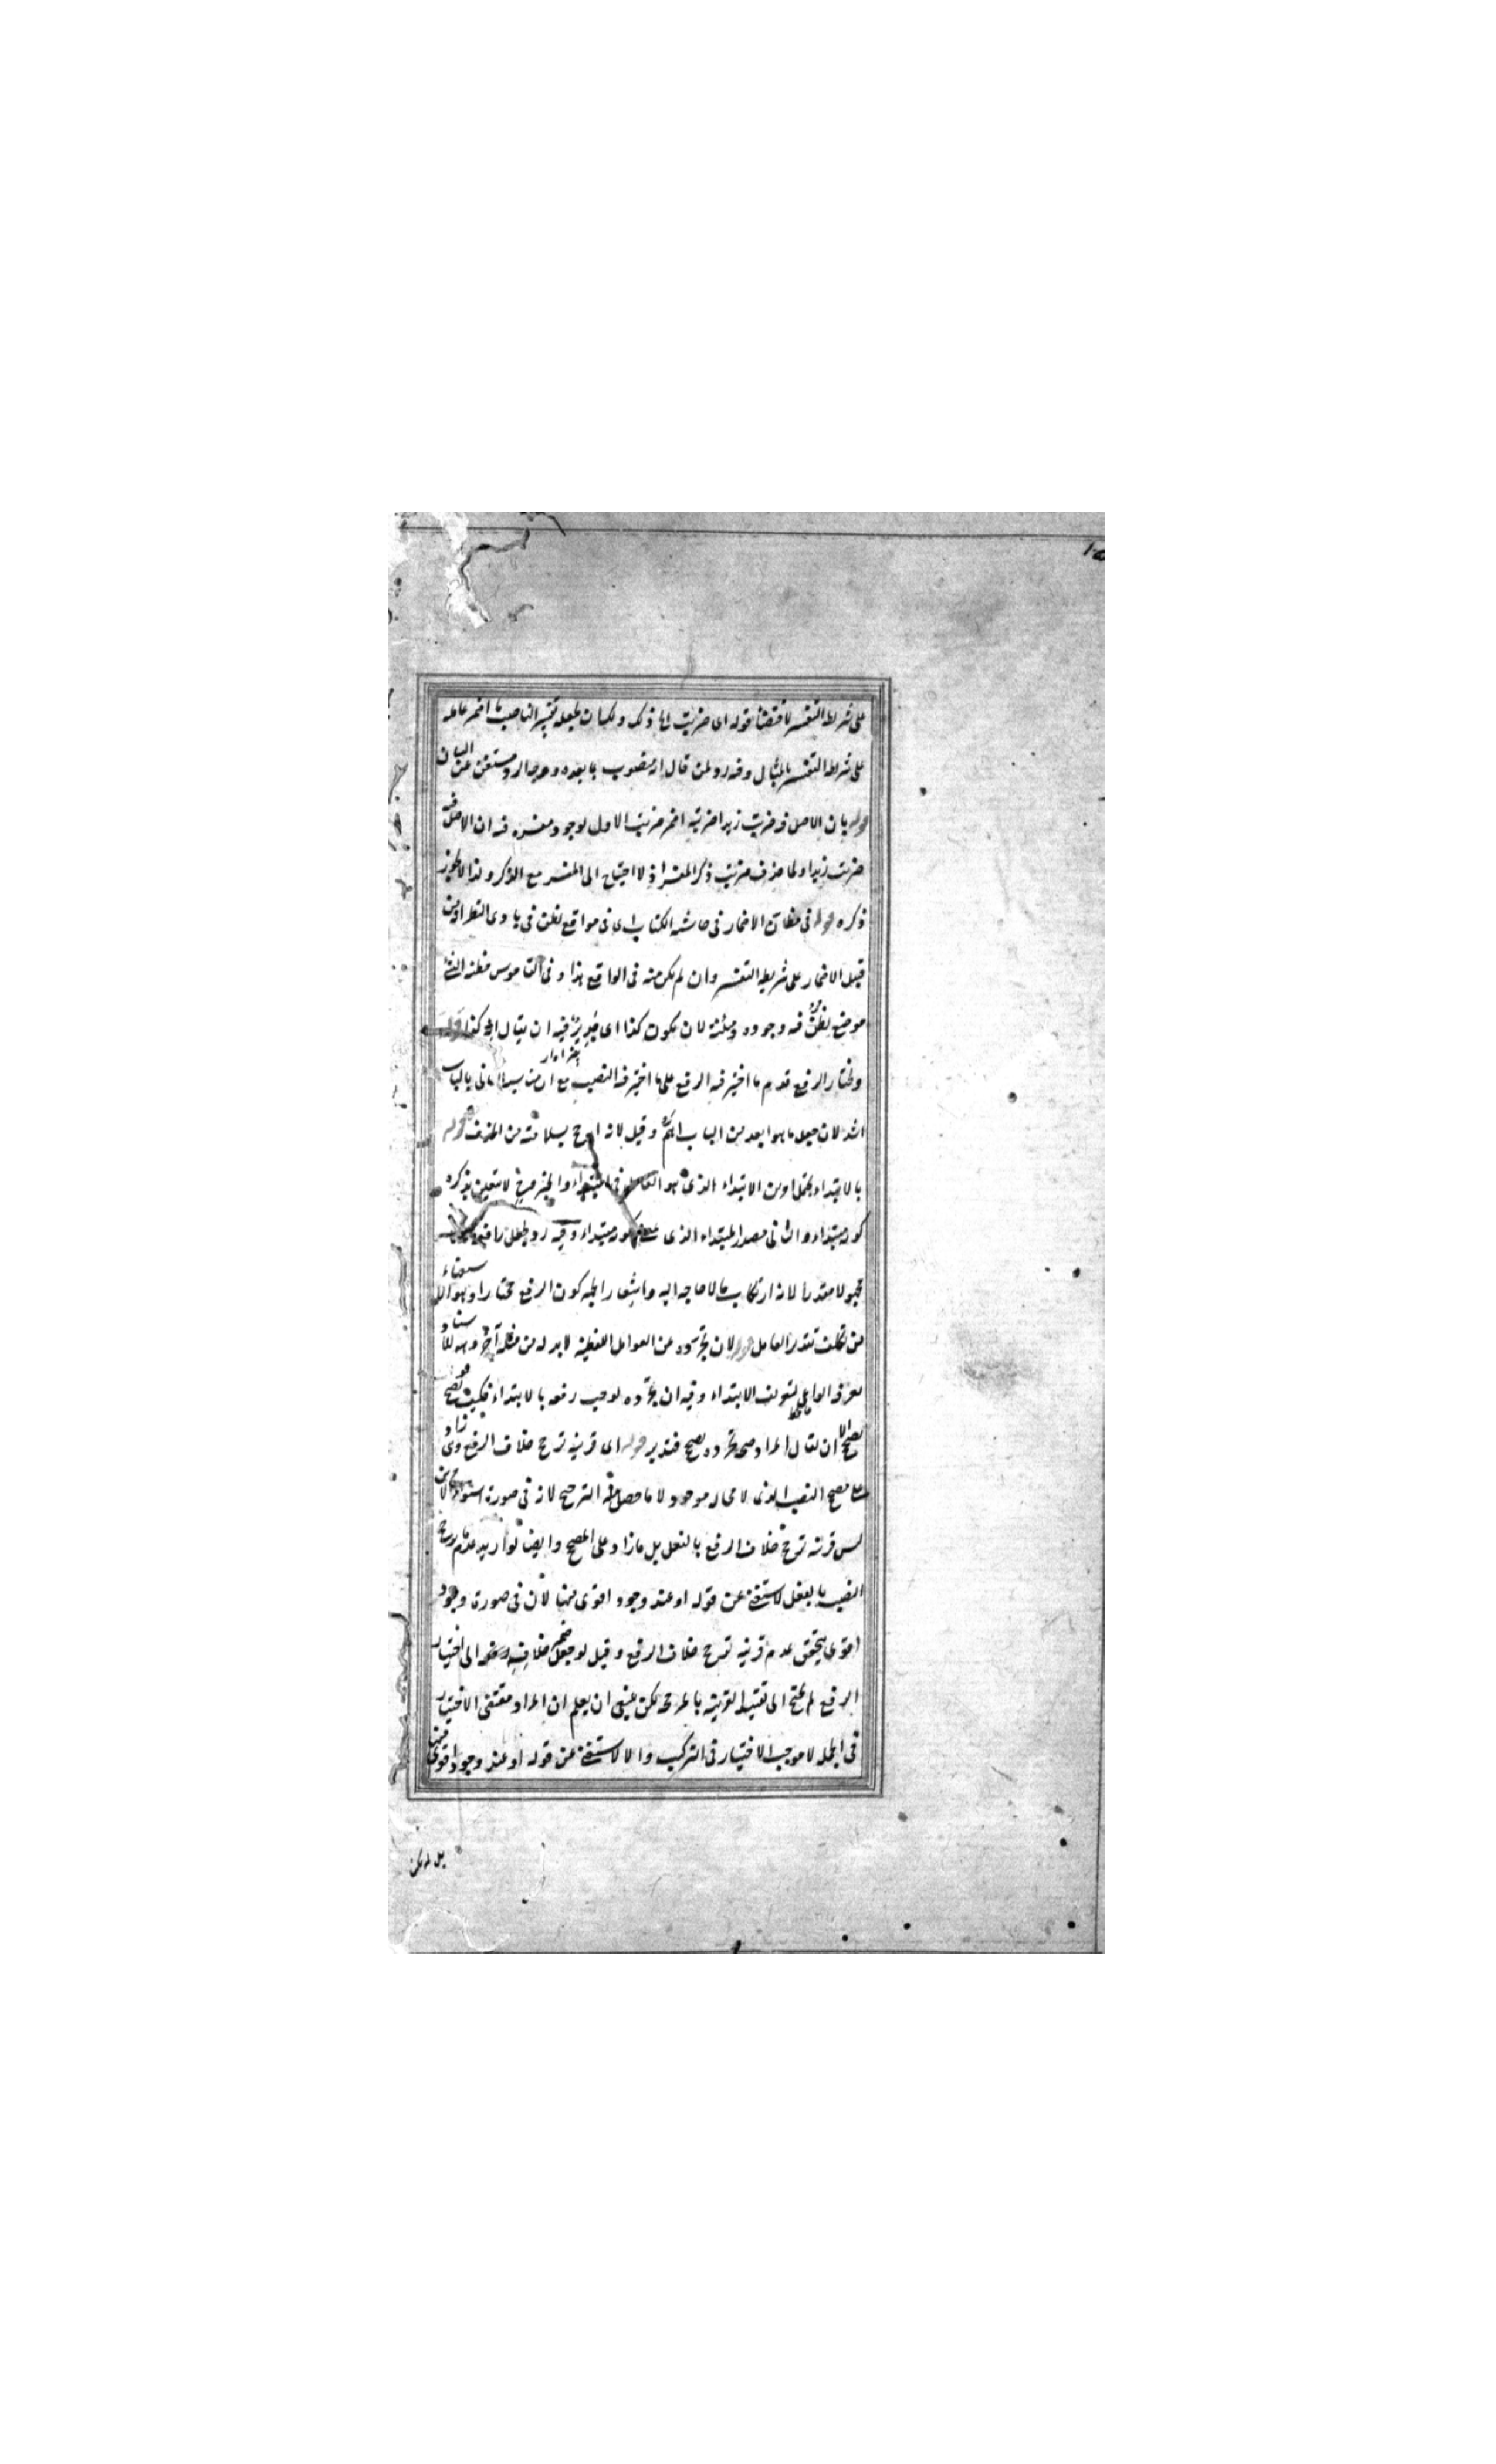 على شريطة التفسير لاقتضاء قوله اى ضربت الى ذلك ولك ان تجعله تفسير الناصب ما اضمر عامله
على شريطة التفسير بالمثال وفيه رد لمن قال انه منصوب بما بعده وعبد الله ومستغن عن البيان
قوله بان الاصل فى ضربت زيدا ضربته اضمر ضربت الاول لوجود مفسره فيه ان الاصل فيه
ضربت زيدا ولما حذف ضربت ذكر المفسر اذ لا احتياج الى المفسر مع الذكر ولذا لا يجوز
ذكره قوله فى مظان الاضمار فى حاشية الكتاب اى فى مواقع تظن فى بادى النظر انه من
قبيل الاضمار على شريطة التفسير وان لم يكن منه فى الواقع هذا وفى القاموس مظنة الشئ
موضع يظن فيه وجوده ومئنة لان يكون كذا اى جدير فيه ان يقال انه كذا قوله
ويختار الرفع قدم ما اختير فيه الرفع على ما اختير فيه النصب مع ان مناسبة الثانى بالباب
اشد لان جعل ما هو ابعد من الباب اهم وقيل لانه ارجح بسلامته من الحذف قوله
بالابتداء يحتمل اوين الابتداء الذى هو العامل فى المبتداء والخبر لا يتعين بذكره
كونه مبتداء والثانى مصدر المبتداء الذى كونه مبتداء وفيه رد لجعل
مجهولا مقدرا لانه ارتكاب ما لا حاجة اليه واشعار بجهة كون الرفع مختارا وهو
من تكلف تقدير العامل قوله لان تجرده عن العوامل اللفظية لا بد له من آخر وهو
تعرف العوامل بتعريف الابتداء وفيه ان تجرده يوجب رفعه بالابتداء فكيف يصح
يصح الا ان يقال المراد تجرده يصح فتدبر قوله اى قرينة ترجح خلاف الرفع
على مصحح النصب الذى لا محالة موجود لا ما حصل فيه الترجيح لانه فى صورة استواء
ليس قرينة ترجح خلاف الرفع بالفعل بل ما زاد على المصحح وايضا لو اريد عدم
النصب بالفعل لاستغنى عن قوله او عند وجود اقوى منها لان فى صورة وجود
اقوى يتحقق عدم قرينة ترجح خلاف الرفع وقيل لو جعل ضمير خلافه الى اختيار
الرفع لم يحتج الى تقييد القرينة بالمرجحة لكن ينبغى ان يعلم ان المراد مقتضى الاختيار
فى الجملة لا موجب الاختيار فى التركيب والا لاستغنى عن قوله او عند وجود اقوى منها
بل لم يكن